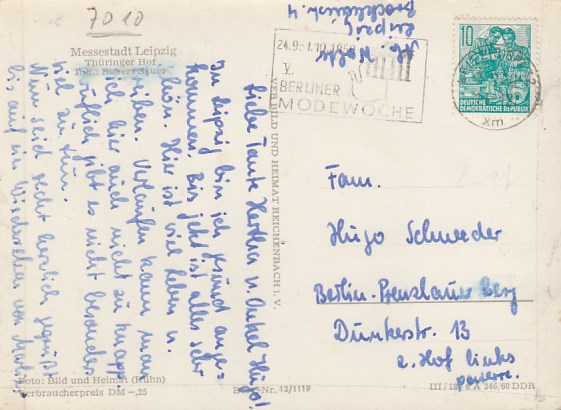 7010
Messestadt Leipzig
Thüringer Hof
Inh.: Hubert Sauer
Leipzig
24.9.-1.10.1960
V.
BERLINER
MODEWOCHE
10
DEUTSCHE
DEMOKRATISCHE REPUBLIK
xm
VERLAG BILD UND HEIMAT REICHENBACH i. V.
Liebe Tante Hertha u. Onkel Hugo!
In Leipzig bin ich gesund ange-
kommen. Bis jetzt ist alles sehr
schön. Hier ist viel Leben u.
Treiben. Verlaufen kann man
sich hier auch nicht zu knapp.
Beruflich gibt es nicht besonders
viel zu tun.
Nun seid recht herzlich gegrüßt
bis auf ein Wiedersehen von
Fam.
Hugo Schneeder
Berlin-Prenzlauer Berg
Dunkerstr. 13
2. Hof links
parterre.
Foto: Bild und Heimat (Kühn)
Verbraucherpreis DM -,25
Best.-Nr. 13/1119
A 246/60 DDR